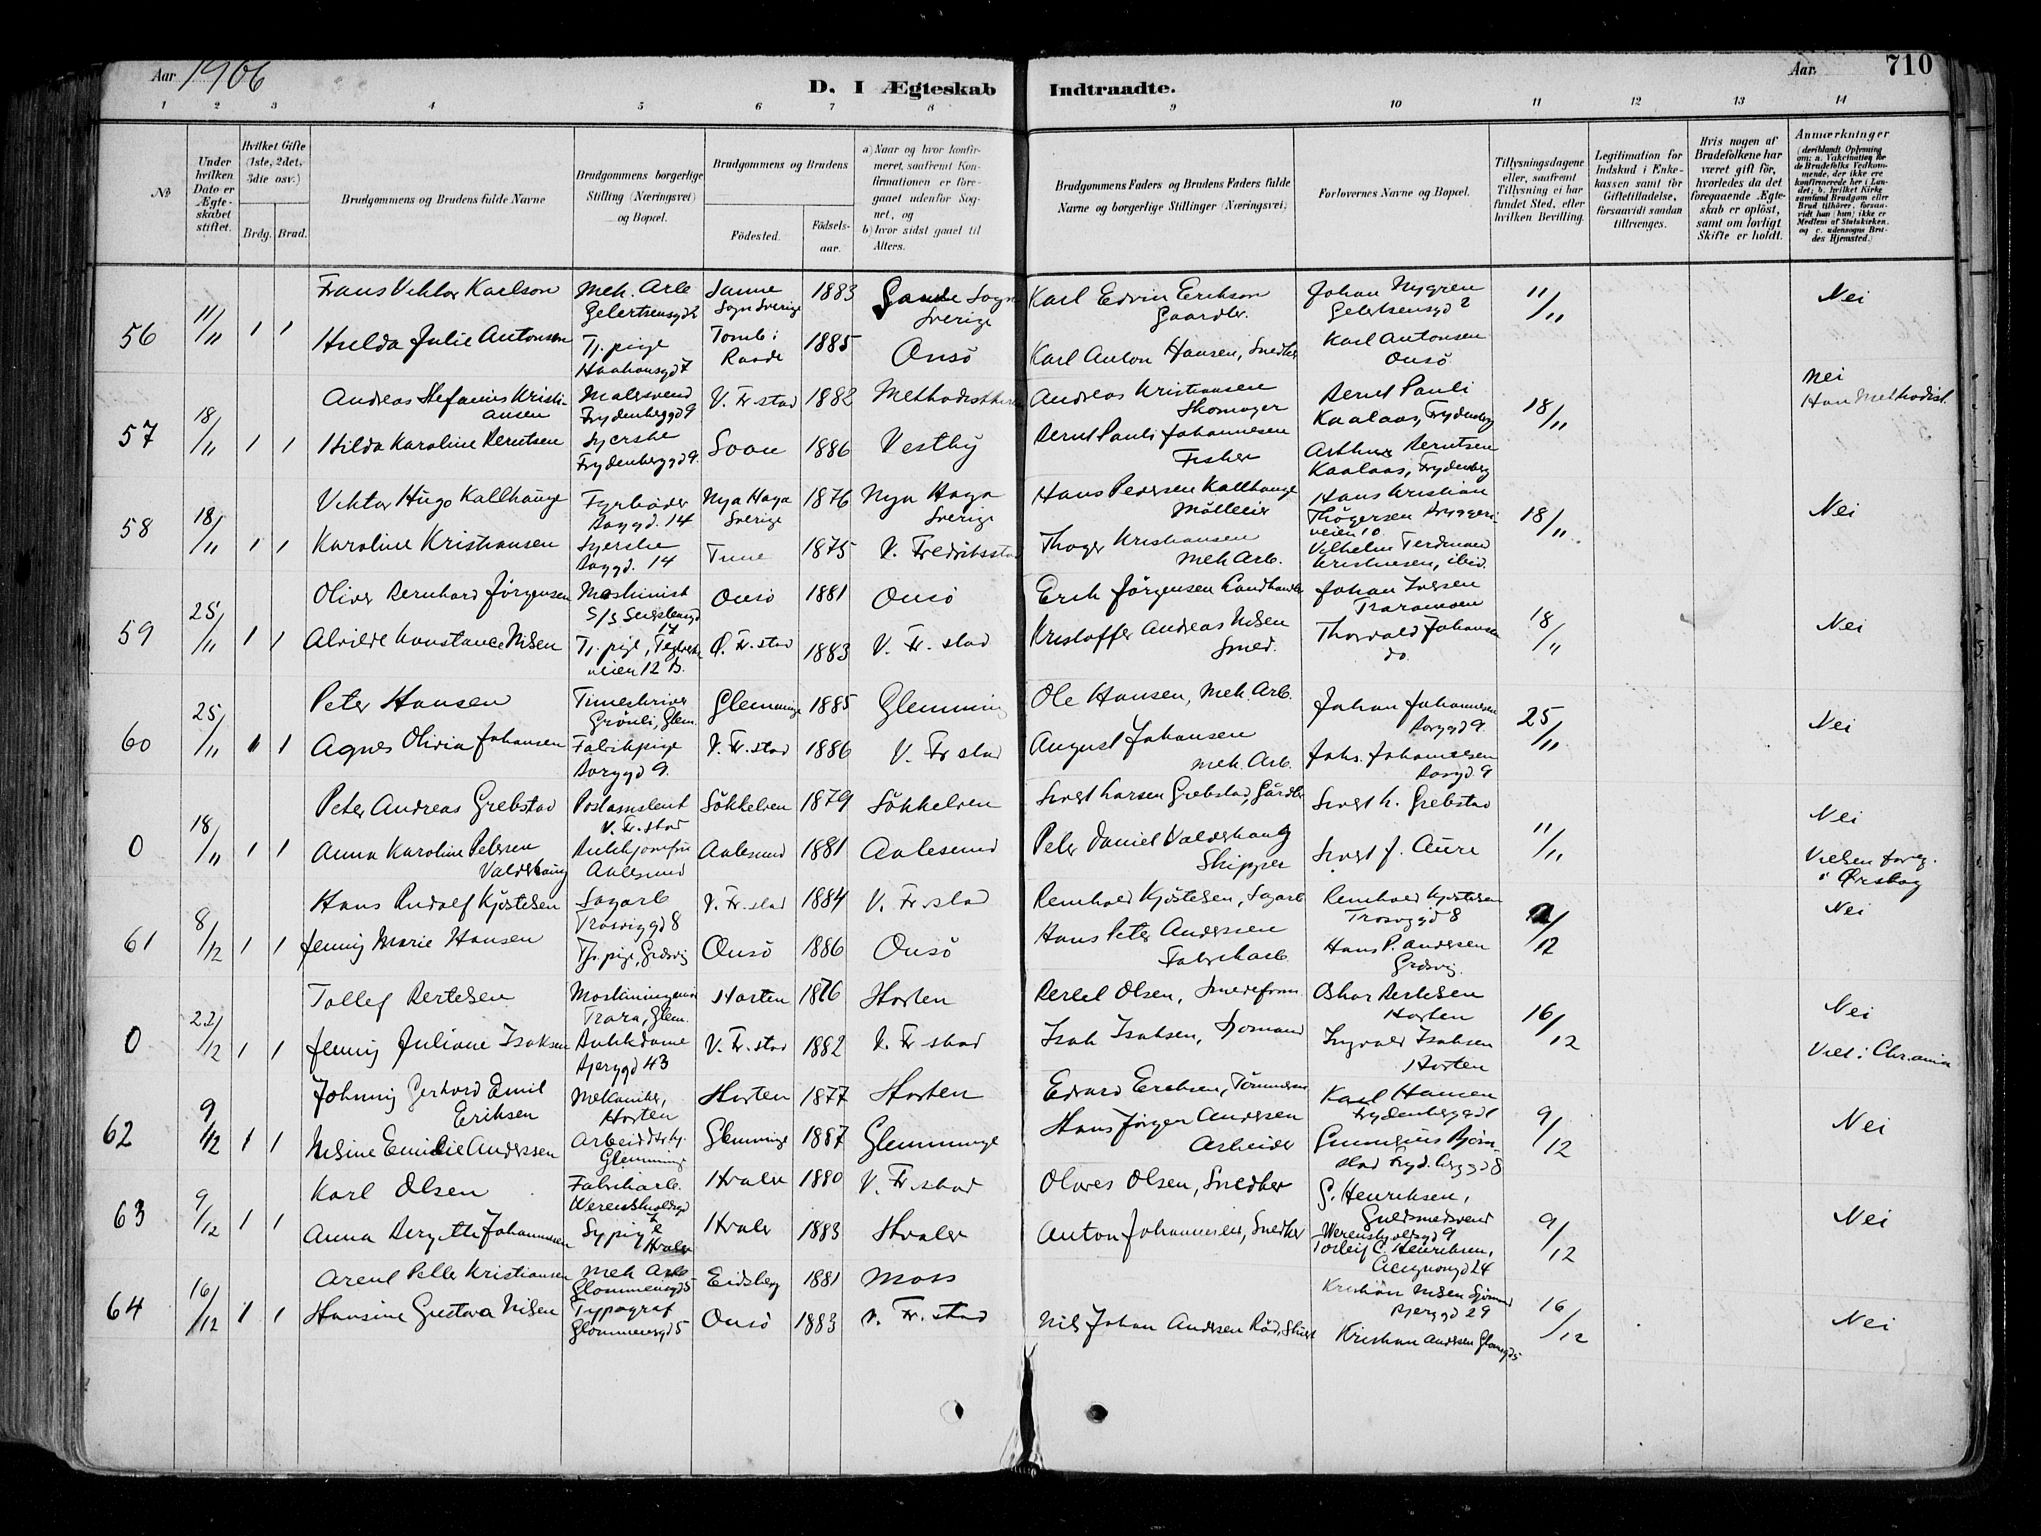 Aar 1906
D. I Ægteskab Indtraadte.
Aar.
710
1 2 3 4 5 6 7 8 9 10 11 12 13 14
No
Under hvilken Dato er Ægteskabet stiftet.
Hvilket Gifte (1ste, 2det, 3die osv.)
Brdg. Brud.
Brudgommens og Brudens fulde Navne
Brudgommens borgerlige Stilling (Næringsvei) og Bopæl.
Brudgommens og Brudens
Fødested.
Fødselsaar.
a) Naar og hvor konfirmeret, saafremt Konfirmationen er foregaaet udenfor Sognet, og
b) hvor sidst gaaet til Alters.
Brudgommens Faders og Brudens Faders fulde Navne og borgerlige Stillinger (Næringsvei)
Forlovernes Navne og Bopæl.
Tillysningsdagene eller, saafremt Tillysning ei har fundet Sted, efter hvilken Bevilling.
Legitimation for Indskud i Enkekassen samt for Giftetilladelse, forsaavidt saadan tiltrænges.
Hvis nogen af Brudefolkene har været gift før, hvorledes da det foregaaende Ægteskab er opløst, samt om lovligt Skifte er holdt.
Anmærkninger
(deriblandt Oplysning om: a. Vakcination for de Brudefolks Vedkommende, der ikke ere konfirmerede her i Landet; b. hvilket Kirkesamfund Brudgom eller Brud tilhører, forsaavidt han (hun) ikke er Medlem af Statskirken, og c. udensogns Brudes Hjemsted.)
56 11/11 1 1
Frans Viktor Karlson Mek. Arb Gelertsensgd 2 Sanne Sogn Sverige 1883 Sanne Sogn Sverige Karl Edvin Erikson Gaardbr. Johan Nygren Gelertsensgd 2 11/11 Nei
Hulda Julie Antonsen Tj. pige Haakonsgd 7 Tomb i Raade 1885 Onsö Karl Anton Hansen, Snedker Karl Antonsen Onsö
57 18/11 1 1
Andreas Stefanius Kristiansen Malersvend Frydenberggd 9 V. Fr.stad 1882 Methodistkirken Andreas Kristiansen Skomager Bernt Pauli Kaalaas, Frydenberg 18/11 Nei Han Methodist.
Hilda Karoline Berntsen Syerske Frydenberggd 9. Soon 1886 Vestby Bernt Pauli Johannesen Fisker Arthur Berntsen Kaalaas, Frydenberg
58 18/11 1 1
Viktor Hugo Kallhauge Fyrböder 14 Nya Haga Sverige 1876 Nya Haga Sverige Hans Pedersen Kallhauge Mölleier Hans Kristian Thögersen Bryggeriveien 10. 18/11 Nei
Karoline Kristiansen Syerske 14 Tune 1875 V. Fredriksstad Thøger Kristiansen Mek Arb. Vilhelm Ferdinand Kristiansen, ibid.
59 25/11 1 1
Oliver Bernhard Jörgensen Maskinist 17 Onsö 1881 Onsö Erik Jörgensen Landhandler Johan Iversen Traramoen 18/11 Nei
Alvilde Konstance Nilsen Tj. pige, Teglverksveien 12 B. Ø. Fr. stad 1883 V. Fr. stad Kristoffer Andreas Nilsen Smed. Thorvald Johansen do.
60 25/11 1 1
Peter Hansen Timeskriver Grönli, Glem. Glemminge 1885 Glemming Ole Hansen, Mek Arb. Johan Johannesen Borggd 9. 25/11 Nei
Agnes Olivia Johansen Fabrikpige Borggd 9. V. Fr. stad 1886 V. Fr stad August Johansen Mek. Arb. Johs. Johannesen Borggd 9
0 18/11 1 1
Peter Andreas Grebstad Postassistent V. Fr. stad Sökkelven 1879 Sökkelven Sivert Larsen Grebstad, Gårdbr Sivert L. Grebstad 11/11 Nei
Anna Karoline Petersen Valderhaug Butikjomfru Aalesund Aalesund 1881 Aalesund Peter Daniel Valderhaug Skipper Sivert J. Aure Vielsen foreg. i Ørskog
61 8/12 1 1
Hans Rudolf Kjöstelsen Sagarb Trosviggd 8 V. Fr. stad 1884 V. Fr. stad Reinhold Kjöstelsen, Sagarb Reinhold Kjöstelsen Trosviggd 8 /12 Nei
Jenny Marie Hansen Tjs. pige, Gresvig Onsö 1886 Onsö Hans Peter Anderssen Fabrikarb. Hans P. Andersen Gresvig.
0 22/12 1 1
Tollef Bertelsen Maskiningeniör Trara, Glem. Horten 1876 Horten Bertel Olsen, Smedeform Oskar Bertelsen Horten 16/12 Nei
Jenny Juliane Isaksen Butikdame Bjerggd 43 V. Fr. stad 1882 V. Fr stad Isak Isaksen, Sjømand Ingvald Isaksen Horten Viet i Chr.ania
62 9/12 1 1
Johnny Gerhard Emil Eriksen Mekaniker, Horten Horten 1877 Horten Edvard Eriksen, Tömmerm Karl Hansen Frydenberggd 1 9/12 Nei
Nilsine Emilie Anderssen Arbeiderske. Glemminge Glemminge 1887 Glemminge Hans Jörgen Andersen Arbeider Björnstad Fryd.berggd 8
63 9/12 1 1
Karl Olsen Fabrikarb. Werenskioldsgd Hvaler 1880 V. Fr. stad Olaves Olsen, Snedker G. Henriksen, Guldsmedsvend Werenskjoldsgd 9 9/12 Nei
Anna Birgitte Johannesen Sypige Hvaler Hvaler 1883 Hvaler Anton Johannesen, Snedker Torleif C. Henriksen, 24
64 16/12 1 1
Arent Pelle Kristiansen Mek Arb Glommensgd 5 Eidsberg 1881 Moss Kristian Nilsen Sjömand Bjerggd 29 16/12 Nei
Hansine Gustava Nilsen Typograf Glommensgd 5 Onsö 1883 V. Fr. stad Nils Johan Andersen Röd, Skibst Kristian Andersen Glomsgd 5